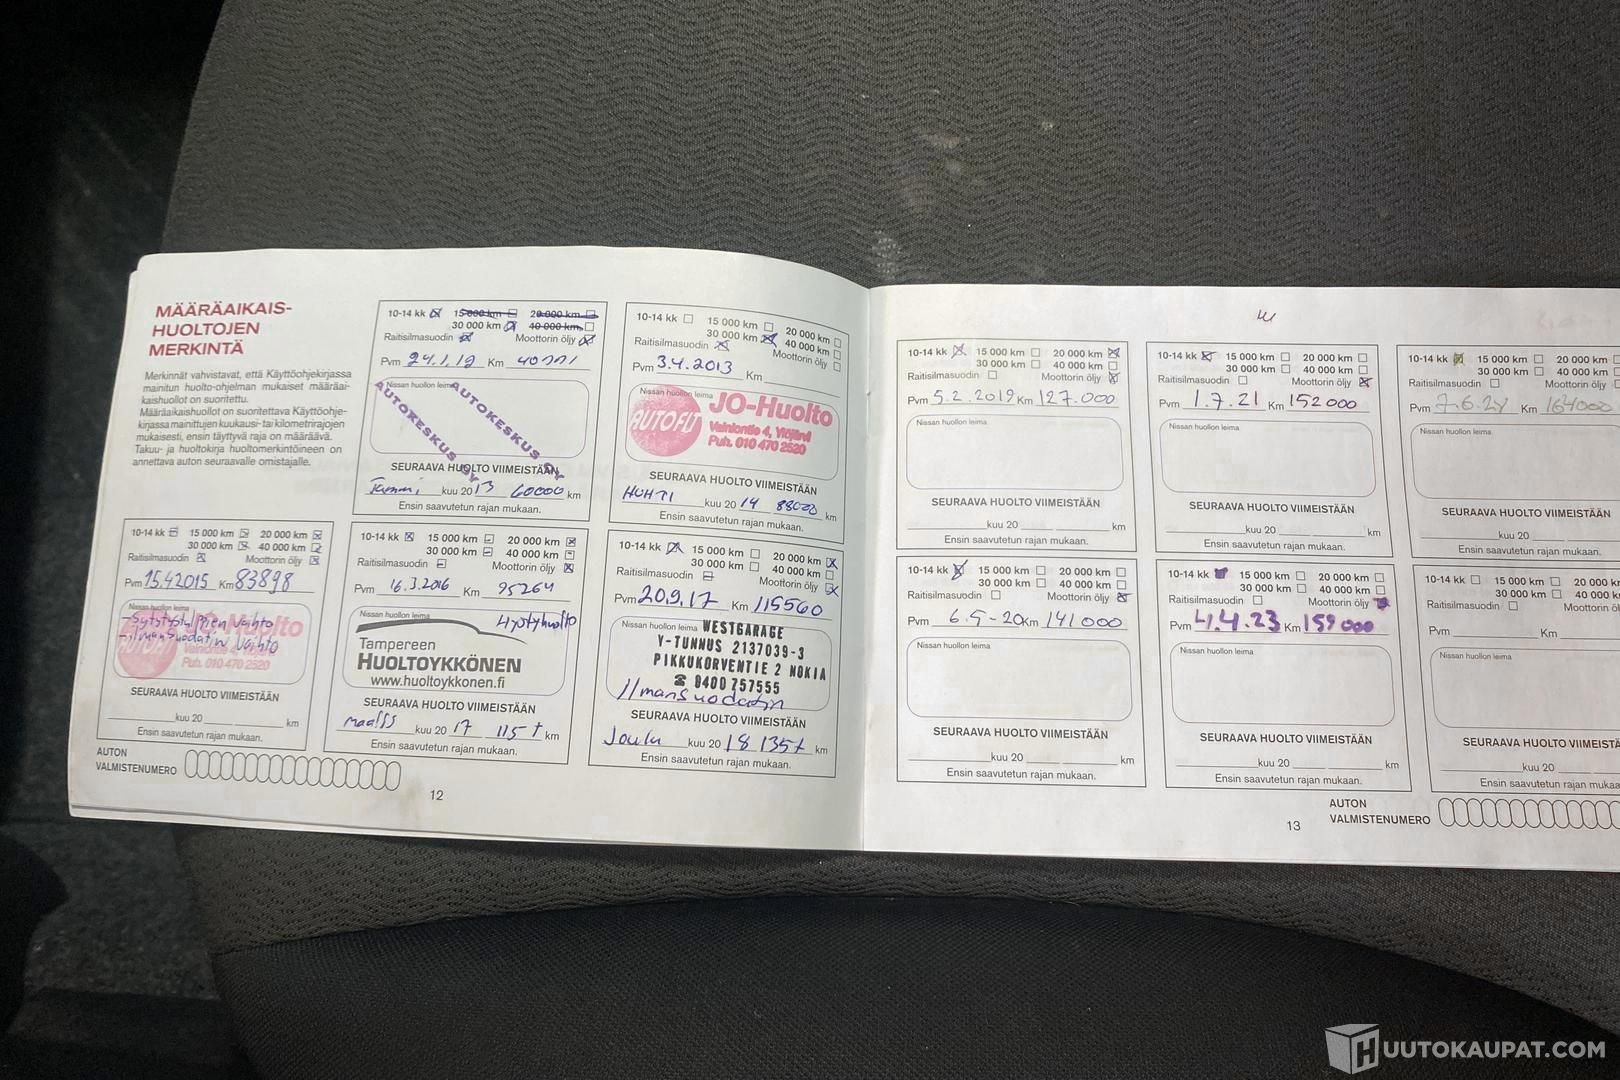 MÄÄRÄAIKAIS-
HUOLTOJEN
MERKINTÄ
Merkinnät vahvistavat, että Käyttöohjekirjassa
mainitun huolto-ohjelman mukaiset määräai-
kaishuollot on suoritettu.
Määräaikaishuollot on suoritettava Käyttöohje-
kirjassa mainittujen kuukausi- tai kilometrirajojen
mukaisesti, ensin täyttyvä raja on määräävä.
Takuu- ja huoltokirja huoltomerkintöineen on
annettava auton seuraavalle omistajalle.
10-14 kk 15 000 km 20 000 km
30 000 km 40 000 km
Raitisilmasuodin Moottorin öljy
Pvm 24.1.12 Km
Nissan huollon leima
AUTOKESKUS OY
AUTOKESKUS OY
SEURAAVA HUOLTO VIIMEISTÄÄN
Tammi kuu 20 13 60000 km
Ensin saavutetun rajan mukaan.
10-14 kk 15 000 km 20 000 km
30 000 km 40 000 km
Raitisilmasuodin Moottorin öljy
Pvm 3.4.2013 Km
Nissan huollon leima
AUTOFIT
JO-Huolto
Vainiontie 4, Ylöjärvi
Puh. 010 470 2520
SEURAAVA HUOLTO VIIMEISTÄÄN
HUHTI kuu 20 14 88000 km
Ensin saavutetun rajan mukaan.
10-14 kk 15 000 km 20 000 km
30 000 km 40 000 km
Raitisilmasuodin Moottorin öljy
Pvm 15.4.2015 Km 83898
Nissan huollon leima
AUTOFIT
JO-Huolto
Vainiontie 4, Ylöjärvi
Puh. 010 470 2520
-Sytytystulppien vaihto
-ilmansuodatin vaihto
SEURAAVA HUOLTO VIIMEISTÄÄN
kuu 20 km
Ensin saavutetun rajan mukaan.
10-14 kk 15 000 km 20 000 km
30 000 km 40 000 km
Raitisilmasuodin Moottorin öljy
Pvm 16.3.2016 Km 95264
Nissan huollon leima Hyötyhuolto
Tampereen
HUOLTOYKKÖNEN
www.huoltoykkonen.fi
SEURAAVA HUOLTO VIIMEISTÄÄN
maalis kuu 20 17 115 t km
Ensin saavutetun rajan mukaan.
10-14 kk 15 000 km 20 000 km
30 000 km 40 000 km
Raitisilmasuodin Moottorin öljy
Pvm 20.9.17 Km 115560
Nissan huollon leima
WESTGARAGE
Y-TUNNUS 2137039-3
PIKKUKORVENTIE 2 NOKIA
☎ 0400 757555
Ilmansuodatin
SEURAAVA HUOLTO VIIMEISTÄÄN
Joulu kuu 20 18 135t km
Ensin saavutetun rajan mukaan.
AUTON
VALMISTENUMERO
12
10-14 kk 15 000 km 20 000 km
30 000 km 40 000 km
Raitisilmasuodin Moottorin öljy
Pvm 5.2.2019 Km 127.000
Nissan huollon leima
SEURAAVA HUOLTO VIIMEISTÄÄN
kuu 20 km
Ensin saavutetun rajan mukaan.
10-14 kk 15 000 km 20 000 km
30 000 km 40 000 km
Raitisilmasuodin Moottorin öljy
Pvm 1.7.21 Km 152000
Nissan huollon leima
SEURAAVA HUOLTO VIIMEISTÄÄN
kuu 20 km
Ensin saavutetun rajan mukaan.
10-14 kk 15 000 km 20 000
30 000 km 40 000
Raitisilmasuodin Moottorin
Pvm Km 164000
Nissan huollon leima
SEURAAVA HUOLTO VIIMEISTÄÄN
kuu 20
Ensin saavutetun rajan mukaan.
10-14 kk 15 000 km 20 000 km
30 000 km 40 000 km
Raitisilmasuodin Moottorin öljy
Pvm 6.5-20 Km 141000
Nissan huollon leima
SEURAAVA HUOLTO VIIMEISTÄÄN
kuu 20 km
Ensin saavutetun rajan mukaan.
10-14 kk 15 000 km 20 000 km
30 000 km 40 000 km
Raitisilmasuodin Moottorin öljy
Pvm 4.4.23 Km 159000
Nissan huollon leima
SEURAAVA HUOLTO VIIMEISTÄÄN
kuu 20 km
Ensin saavutetun rajan mukaan.
10-14 kk 15 000 km 20 000
30 000 km 40 000
Raitisilmasuodin Moottorin
Pvm Km
Nissan huollon leima
SEURAAVA HUOLTO
kuu 20
Ensin saavutetun rajan
13
AUTON
VALMISTENUMERO
HUUTOKAUPAT.COM